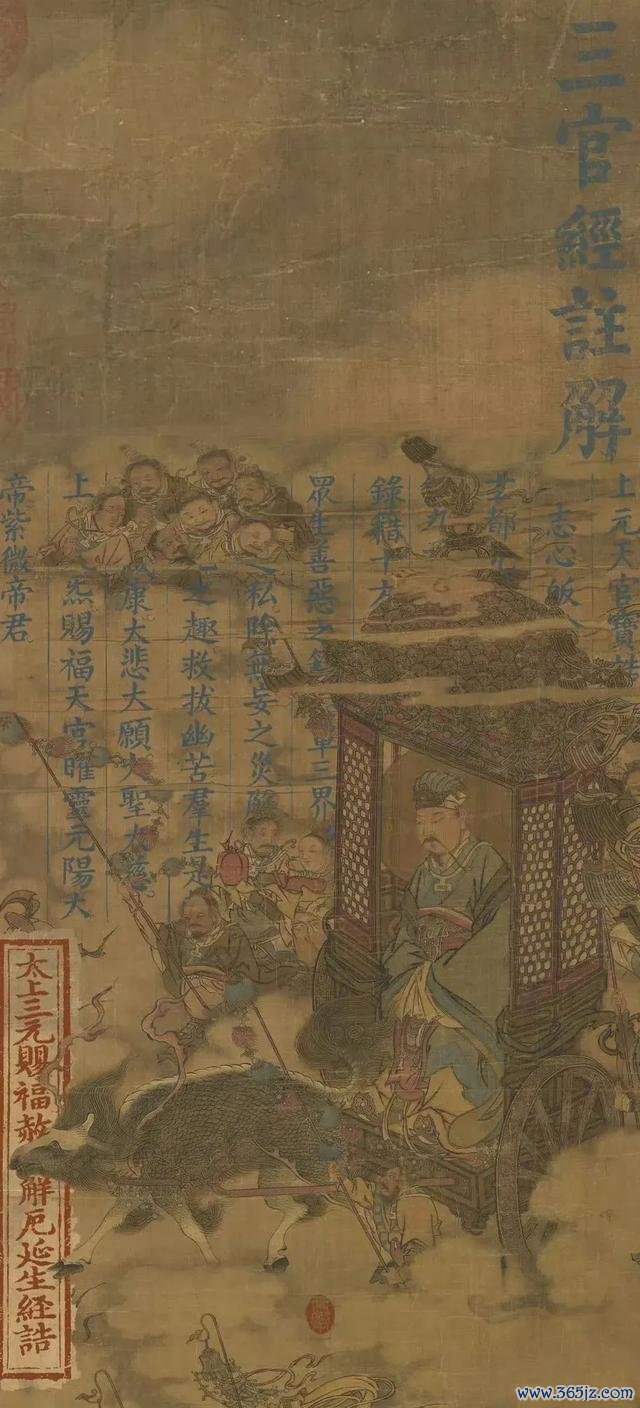 三官經註解
上元天官寶誥
志心皈
玄都
九
錄籍十方
眾生善惡之 三界
私除無妄之災解
之趣救拔幽苦羣生是
康大悲大願大聖大慈
上 炁賜福天官曜靈元陽大
帝紫微帝君
太上三元賜福赦 解厄延生經誥
www.365jz.com